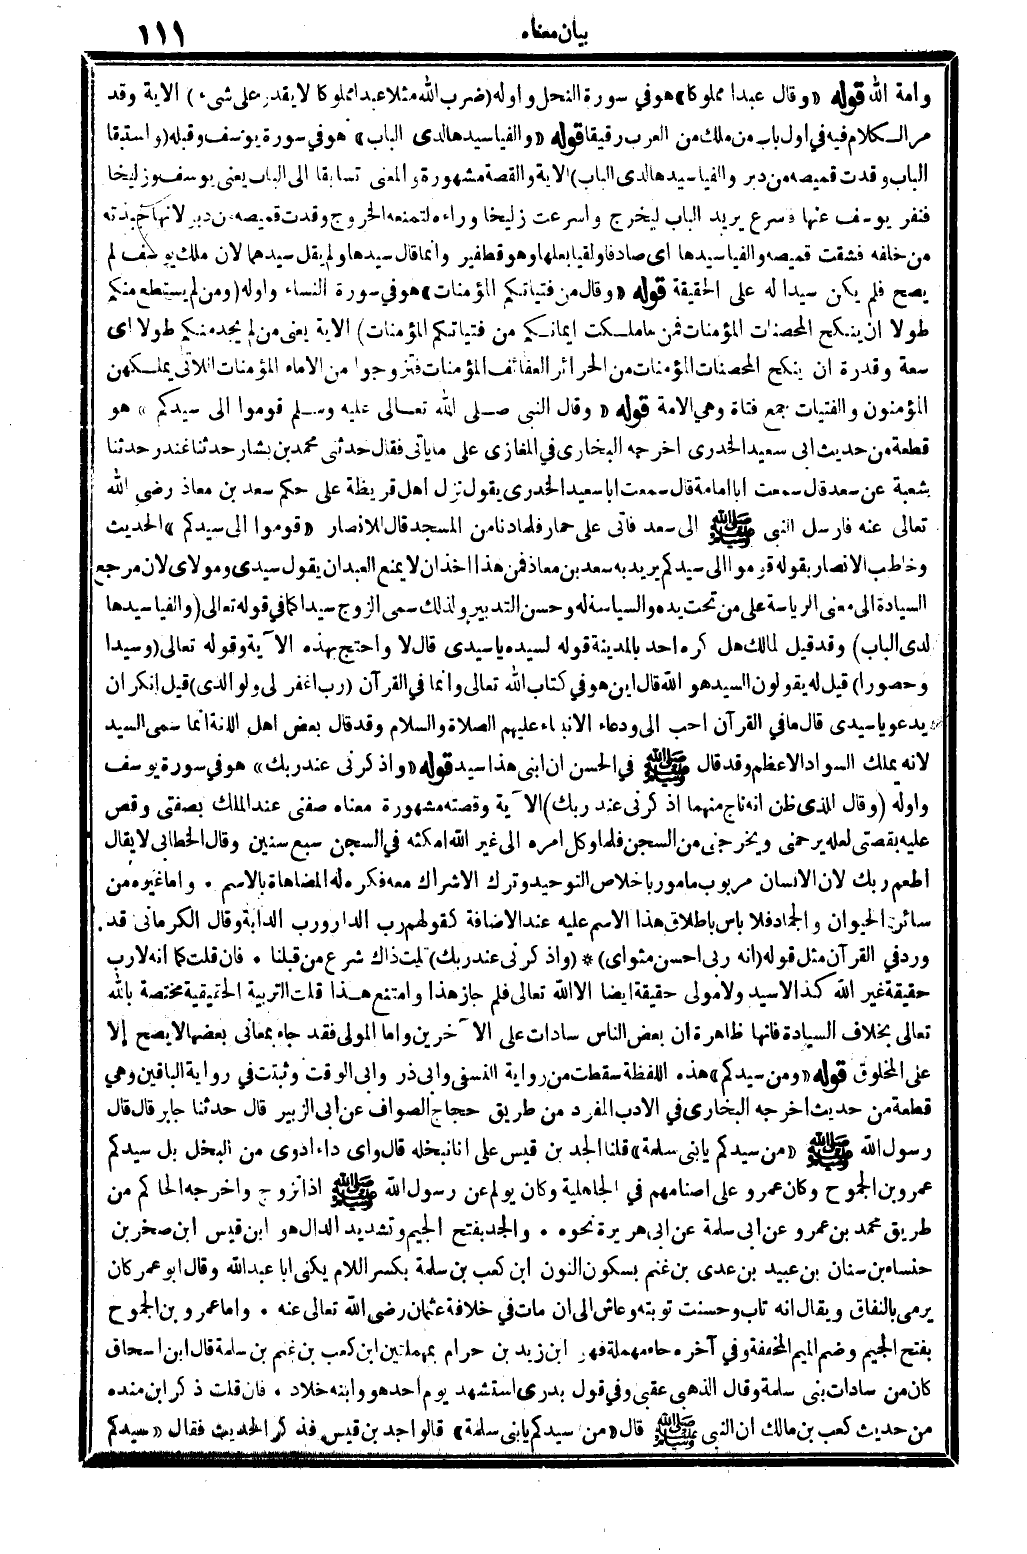 بيان معناه ١١١
وامة الله قوله «وقال عبدا مملوكا» هو في سورة النحل واوله (ضرب الله مثلا عبدا مملوكا لا يقدر على شيء) الاية وقد
مر الكلام فيه في اول باب من ملك من العرب رقيقا قوله «والفيا سيدها لدى الباب» هو في سورة يوسف وقبله (واستبقا
الباب وقدت قميصه من دبر والفيا سيدها لدى الباب) الاية والقصة مشهورة والمعنى تسابقا الى الباب يعنى يوسف وزليخا
فنفر يوسف عنها فاسرع يريد الباب ليخرج واسرعت زليخا وراءه لتمنعه الخروج وقدت قميصه من دبر لانها جبذته
من خلفه فشقت قميصه والفيا سيدها اى صادفا ولقيا بعلها وهو قطفير وانما قال سيدها ولم يقل سيدهما لان ملك يوسف لم
يصح فلم يكن سيدا له على الحقيقة قوله «وقال من فتياتكم المؤمنات» هو في سورة النساء واوله (ومن لم يستطع منكم
طولا ان ينكح المحصنات المؤمنات فمن ما ملكت ايمانكم من فتياتكم المؤمنات) الاية يعنى من لم يجد منكم طولا اى
سعة وقدرة ان ينكح المحصنات المؤمنات من الحرائر العفائف المؤمنات فتزوجوا من الاماء المؤمنات اللاتى يملكهن
المؤمنون والفتيات جمع فتاة وهى الامة قوله «وقال النبى صلى الله تعالى عليه وسلم قوموا الى سيدكم» هو
قطعة من حديث ابى سعيد الخدرى اخرجه البخارى في المغازى على ما يأتى فقال حدثنى محمد بن بشار حدثنا غندر حدثنا
شعبة عن سعد قال سمعت ابا امامة قال سمعت ابا سعيد الخدرى يقول نزل اهل قريظة على حكم سعد بن معاذ رضى الله
تعالى عنه فارسل النبى ﷺ الى سعد فاتى على حمار فلما دنا من المسجد قال للانصار «قوموا الى سيدكم» الحديث
وخاطب الانصار بقوله قوموا الى سيدكم يريد به سعد بن معاذ فمن هذا اخذ ان لا يمنع العبد ان يقول سيدى ومولاى لان مرجع
السيادة الى معنى الرياسة على من تحت يده والسياسة له وحسن التدبير ولذلك سمى الزوج سيدا كما في قوله تعالى (والفيا سيدها
لدى الباب) وقد قيل لمالك هل كره احد بالمدينة قوله لسيده يا سيدى قال لا واحتج بهذه الآية وقوله تعالى (وسيدا
وحصورا) قيل له يقولون السيد هو الله قال اين هو في كتاب الله تعالى وانما في القرآن (رب اغفر لى ولوالدى) قيل انكر ان
يدعو يا سيدى قال ما في القرآن احب الى ودعاء الانبياء عليهم الصلاة والسلام وقد قال بعض اهل اللغة انما سمى السيد
لانه يملك السواد الاعظم وقد قال ﷺ في الحسن ان ابنى هذا سيد قوله «واذكرنى عند ربك» هو في سورة يوسف
واوله (وقال للذى ظن انه ناج منهما اذكرنى عند ربك) الآية وقصته مشهورة معناه صفنى عند الملك بصفتى وقص
عليه بقصتى لعله يرحمنى ويخرجنى من السجن فلما وكل امره الى غير الله امكثه في السجن سبع سنين وقال الخطابى لا يقال
اطعم ربك لان الانسان مربوب مامور باخلاص التوحيد وترك الاشراك معه فكره له المضاهاة بالاسم . واما غيره من
سائر الحيوان والجماد فلا باس باطلاق هذا الاسم عليه عند الاضافة كقولهم رب الدار ورب الدابة وقال الكرمانى قد
ورد في القرآن مثل قوله (انه ربى احسن مثواى) * (واذكرنى عند ربك) قلت ذاك شرع من قبلنا . فان قلت كما انه لا رب
حقيقة غير الله كذا لا سيد ولا مولى حقيقة ايضا الا الله تعالى فلم جاز هذا وامتنع هذا قلت التربية الحقيقية مختصة بالله
تعالى بخلاف السيادة فانها ظاهرة ان بعض الناس سادات على الآخرين واما المولى فقد جاء بمعانى بعضها لا يصح إلا
على المخلوق قوله «ومن سيدكم» هذه اللفظة سقطت من رواية النسفى وابى ذر وابى الوقت وثبتت في رواية الباقين وهى
قطعة من حديث اخرجه البخارى في الادب المفرد من طريق حجاج الصواف عن أبى الزبير قال حدثنا جابر قال قال
رسول الله ﷺ «من سيدكم يا بنى سلمة» قلنا الجد بن قيس على انا نبخله قال واى داء ادوى من البخل بل سيدكم
عمرو بن الجموح وكان عمرو على اصنامهم في الجاهلية وكان يولم عن رسول الله ﷺ اذا تزوج واخرجه الحاكم من
طريق محمد بن عمرو عن ابى سلمة عن ابى هريرة نحوه . والجد بفتح الجيم وتشديد الدال هو ابن قيس ابن صخر بن
خنساء بن سنان بن عبيد بن عدى بن غنم بسكون النون ابن كعب بن سلمة بكسر اللام يكنى ابا عبد الله وقال ابو عمر كان
يرمى بالنفاق ويقال انه تاب وحسنت توبته وعاش الى ان مات في خلافة عثمان رضى الله تعالى عنه . واما عمرو بن الجموح
بفتح الجيم وضم الميم المخففة وفي آخره حاء مهملة فهو ابن زيد بن حرام بمهملتين ابن كعب بن غنم بن سلمة قال ابن اسحاق
كان من سادات بنى سلمة وقال الذهبى عقبى وفي قول بدرى استشهد يوم احد هو وابنه خلاد . فان قلت ذكر ابن منده
من حديث كعب بن مالك ان النبى ﷺ قال «من سيدكم يا بنى سلمة» قالوا جد بن قيس فذكر الحديث فقال «سيدكم